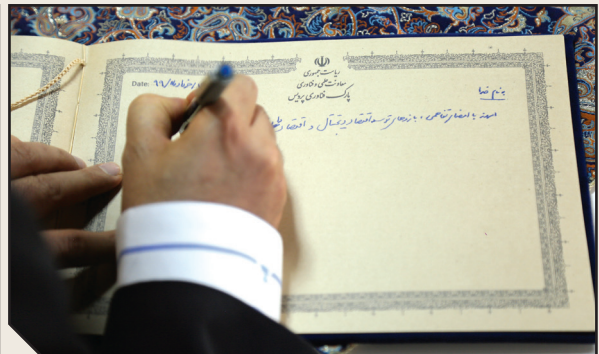 ریاست جمهوری
معاونت علمی و فناوری
پارک فناوری پردیس
Date: ۹۹/
بنام خدا
با امضای تفاهمی ، بازوهای توسعه اقتصاد دیجیتال و اقتصاد